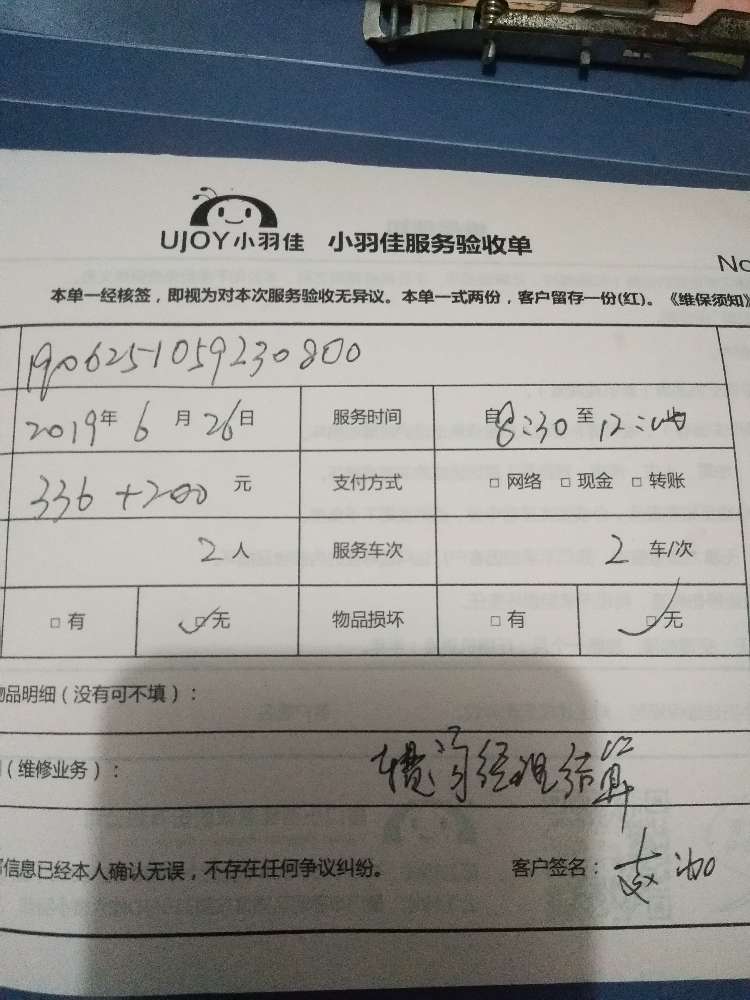 UJOY小羽佳 小羽佳服务验收单
No
本单一经核签，即视为对本次服务验收无异议。本单一式两份，客户留存一份(红)。《维保须知》
1906251059230800
2019年 6 月 26日 服务时间 自8:30 至12:00
336+200 元 支付方式 □ 网络 □ 现金 □ 转账
2人 服务车次 2 车/次
□ 有 □ 无 物品损坏 □ 有 □ 无
物品明细（没有可不填）：
（维修业务）： 经理结算
信息已经本人确认无误，不存在任何争议纠纷。 客户签名：